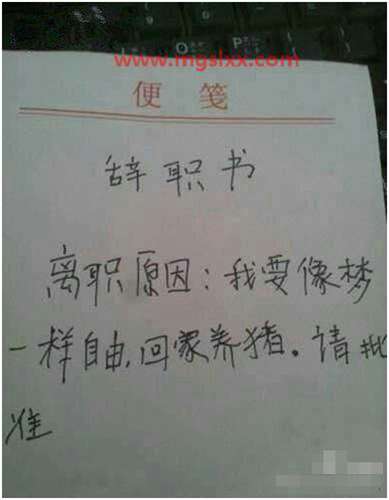 O P
www.mgslxx.com
便笺
辞职书
离职原因：我要像梦
一样自由，回家养猪。请批
准